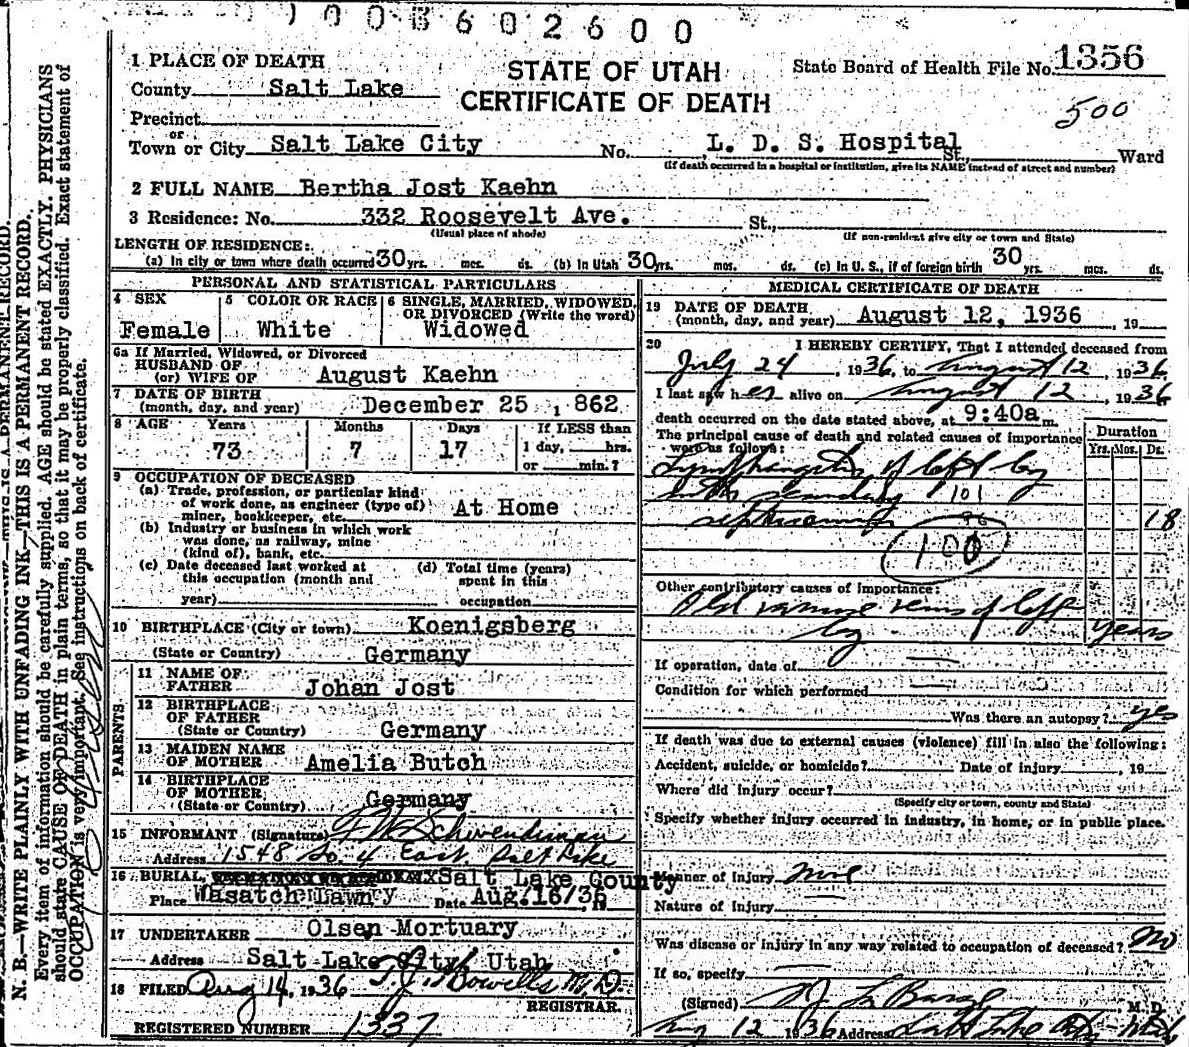 1003602600
STATE OF UTAH
CERTIFICATE OF DEATH
State Board of Health File No. 1356
500
1 PLACE OF DEATH
County Salt Lake
Precinct
or
Town or City Salt Lake City No. L. D. S. Hospital St., Ward
(If death occurred in a hospital or institution, give its NAME instead of street and number)
2 FULL NAME Bertha Jost Kaehn
3 Residence: No. 332 Roosevelt Ave. St.,
(Usual place of abode) (If non-resident give city or town and State)
LENGTH OF RESIDENCE:
(a) In city or town where death occurred 30 yrs. mos. ds. (b) In Utah 30 yrs. mos. ds. (c) In U. S., if of foreign birth 30 yrs. mos. ds.
PERSONAL AND STATISTICAL PARTICULARS
4 SEX
Female
5 COLOR OR RACE
White
6 SINGLE, MARRIED, WIDOWED, OR DIVORCED (Write the word)
Widowed
6a If Married, Widowed, or Divorced
HUSBAND OF
(or) WIFE OF August Kaehn
7 DATE OF BIRTH
(month, day, and year) December 25, 1862
8 AGE Years Months Days If LESS than
73 7 17 1 day, hrs.
or min.?
9 OCCUPATION OF DECEASED
(a) Trade, profession, or particular kind
of work done, as engineer (type of)
miner, bookkeeper, etc. At Home
(b) Industry or business in which work
was done, as railway, mine
(kind of), bank, etc.
(c) Date deceased last worked at
this occupation (month and
year)
(d) Total time (years)
spent in this
occupation
10 BIRTHPLACE (City or town) Koenigsberg
(State or Country) Germany
PARENTS
11 NAME OF
FATHER Johan Jost
12 BIRTHPLACE
OF FATHER
(State or Country) Germany
13 MAIDEN NAME
OF MOTHER Amelia Butch
14 BIRTHPLACE
OF MOTHER
(State or Country) Germany
15 INFORMANT (Signature) F W Schwendiman
Address 1548 So. 4 East. Salt Lake
16 BURIAL, Salt Lake County
Place Wasatch Lawn Date Aug. 16/36, 19
17 UNDERTAKER Olsen Mortuary
Address Salt Lake City, Utah
18 FILED Aug 14, 1936 T. J. Howells M.D.
REGISTRAR.
REGISTERED NUMBER 1337
MEDICAL CERTIFICATE OF DEATH
19 DATE OF DEATH
(month, day, and year) August 12, 1936, 19
20 I HEREBY CERTIFY, That I attended deceased from
July 24, 1936, to August 12, 1936,
I last saw her alive on August 12, 1936
death occurred on the date stated above, at 9:40a m.
The principal cause of death and related causes of importance
were as follows:
Duration
Yrs. Mos. Ds.
Lymphangitis of left leg
with secondary 101
septicaemia 96 18
100
Other contributory causes of importance:
Old varicose veins of left
leg years
If operation, date of
Condition for which performed
Was there an autopsy? yes
If death was due to external causes (violence) fill in also the following:
Accident, suicide, or homicide? Date of injury, 19
Where did injury occur?
(Specify city or town, county and State)
Specify whether injury occurred in industry, in home, or in public place.
Manner of Injury None
Nature of Injury
Was disease or injury in any way related to occupation of deceased? No
If so, specify
(Signed) M. D.
Aug 12 1936 Address Salt Lake City Utah
N. B.—WRITE PLAINLY WITH UNFADING INK—THIS IS A PERMANENT RECORD.
Every item of information should be carefully supplied. AGE should be stated EXACTLY. PHYSICIANS
should state CAUSE OF DEATH in plain terms, so that it may be properly classified. Exact statement of
OCCUPATION is very important. See instructions on back of certificate.